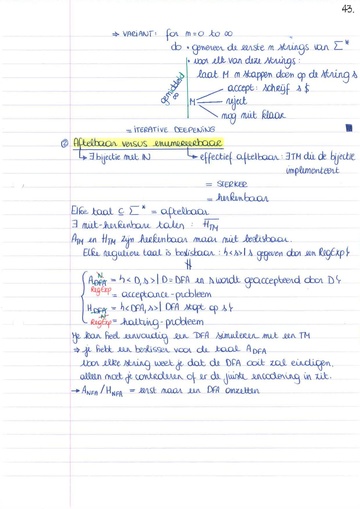 43.
⇒ VARIANT: for m=0 to ∞
do • genereer de eerste m strings van Σ*
• voor elk van deze strings:
laat M m stappen doen op de string s
gemiddeld ∞
M — accept: schrijf s $
— reject
— nog niet klaar
= ITERATIVE DEEPENING
② Aftelbaar versus enumereerbaar
↳ ∃ bijectie met ℕ ↳ effectief aftelbaar: ∃TM die de bijectie
implementeert
= STERKER
= herkenbaar
Elke taal ⊆ Σ* = aftelbaar
∃ niet-herkenbare talen: H̅T̅M̅
A_TM en H_TM zijn herkenbaar maar niet beslisbaar.
Elke reguliere taal is beslisbaar: {<s> | s gegeven door een RegExp}
A_DFA = {<D,s> | D = DFA en s wordt geaccepteerd door D}
RegExp = acceptance-probleem
H_DFA = {<DFA,s> | DFA stopt op s}
RegExp = halting-probleem
Je kan heel eenvoudig een DFA simuleren met een TM
→ je hebt een beslisser voor de taal A_DFA
Voor elke string weet je dat de DFA ooit zal eindigen,
alleen moet je controleren of er de juiste encodering in zit.
→ A_NFA / H_NFA = eerst naar een DFA omzetten